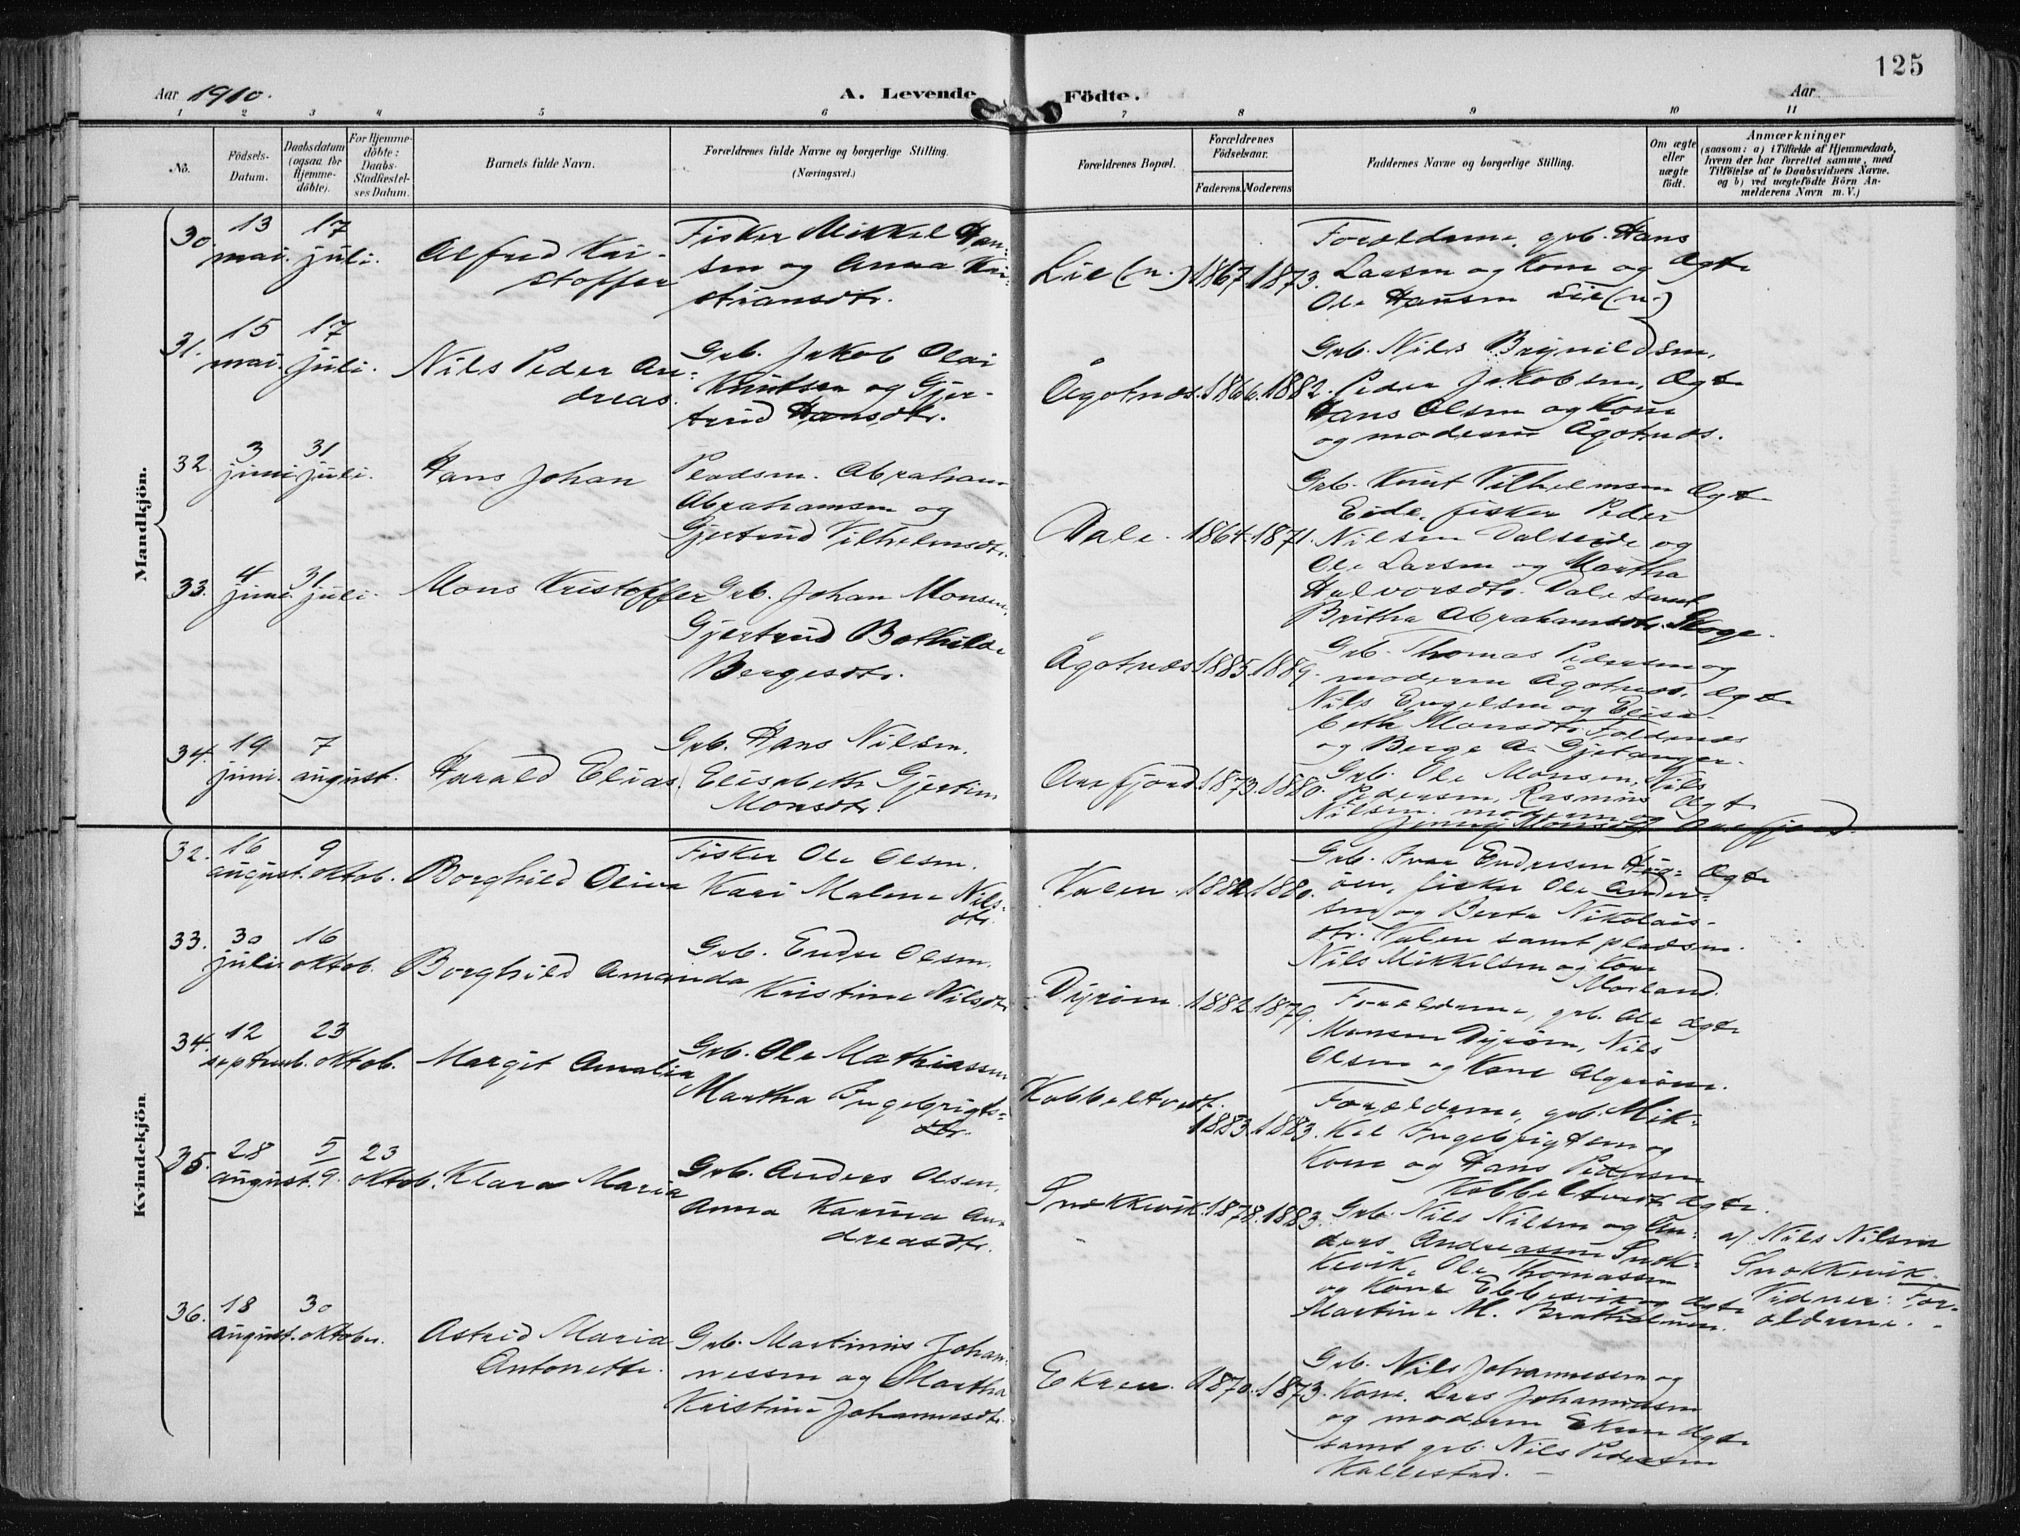 125
Aar 1910.
A. Levende Födte.
Aar
1 2 3 4 5 6 7 8 9 10 11
No.
Födsels-Datum.
Daabsdatum (ogsaa for Hjemme-döbte).
For Hjemme-döbte: Daabs-Stadfæstel-ses Datum.
Barnets fulde Navn.
Forældrenes fulde Navne og borgerlige Stilling.
(Næringsvei.)
Forældrenes Bopæl.
Forældrenes Födselsaar.
Faderens. Moderens.
Faddernes Navne og borgerlige Stilling.
Om ægte eller uægte födt.
Anmærkninger
(saasom: a) i Tilfælde af Hjemmedaab,
hvem der har forrettet samme, med
Tilföielse af to Daabsvidners Navne,
og b) ved uægtefödte Börn An-
melderens Navn m. V.)
Mandkjön.
30. 13 mai. 17 juli.
Alfred Kri-
stoffer
Fisker Mikkel Han-
sen og Anna Kri-
stiansdtr.
Lie (n.) 1867. 1873.
Forældrene, grb. Hans
Larsen og Kone og
Ole Hansen Lie (n.)
Ægte
31. 15 mai. 17 juli.
Nils Peder An-
dreas.
Grb. Jakob Olai
Knutsen og Gjer-
trud Hansdtr.
Ågotnæs. 1866. 1882.
Grb. Nils Brynildsen,
Peder Jakobsen,
Hans Olsen og Kone
og moderen Ågotnæs.
Ægte
32. 3 juni 31 juli.
Hans Johan
Pladsm. Abraham
Abrahamsen og
Gjertrud Vilhelmsdtr.
Dale. 1864. 1871.
Grb. Knut Vilhelmsen
Eide, fisker Peder
Nilsen Dalseide og
Ole Larsen og Martha
Halvorsdtr. Dale samt
Britha Abrahamsdtr. Skoge.
Ægte
33. 4 juni. 31 juli.
Mons Kristoffer
Grb. Johan Monsen,
Gjertrud Bothilde
Bergesdtr.
Ågotnæs 1885. 1889.
Grb. Thomas Pedersen og
moderen Ågotnæs,
Nils Engelsen og Elisa-
beth Monsdtr. Foldnæs
og Berge A. Gjetanger.
Ægte
34. 19 juni. 7 august.
Harald Elias.
Grb. Hans Nilsen.
Elisabeth Gjertine
Monsdtr.
Arefjord. 1873. 1880.
Grb. Ole Monsen, Nils
Pedersen, Rasmus
Nilsen, moderen og
Jenny Monsdtr. Arefjord.
Ægte
Kvindekjön.
32. 16 august. 9 oktob.
Borghild Oliva
Fisker Ole Olsen.
Kari Malene Nils-
dtr.
Valen 1882. 1880.
Grb. Ivar Endresen
öen, fisker Ole Ander-
sen og Berta Nikolais-
dtr. Valen samt pladsm.
Nils Mikkelsen og Kone
Morland.
Ægte
33. 30 juli 16 oktob.
Borghild Amanda
Grb. Endre Olsen.
Kristine Nilsdtr
Dyröen. 1882. 1879.
Forældrene, grb. Ole
Monsen Dyröen, Nils
Olsen og Kone Algeröen.
Ægte
34. 12 septemb. 23 oktob.
Margit Amalia
Grb. Ole Mathiassen
Martha Ingebrigts-
dtr.
Kobbeltvedt. 1883. 1883.
Forældrene, grb. Mik-
kel Ingebrigtsen og
Kone og Hans Pedersen
Kobbeltvedt.
Ægte.
35. 28 august. 5/9. 23 oktob.
Klara Maria
Grb. Anders Olsen,
Anna Karina An-
dreasdtr.
Snekkevik. 1878. 1883.
Grb. Nils Nilsen og An-
ders Andreassen Snek-
kevik, Ole Thomassen
og Kone Ebbesvik og
Martine M. Bratholmen.
Ægte
a/ Nils Nilsen
Snekkevik.
Vidner: For-
ældrene.
36. 18 august. 30 oktober.
Astrid Maria
Antonette.
Grb. Martinus Johan-
nessen og Martha
Kristine Johannesdtr.
Ekren. 1870. 1873.
Grb. Nils Johannesen og
Kone, Lars Johannesen
og moderen Ekren
samt grb. Nils Pedersen
Kallestad.
Ægte